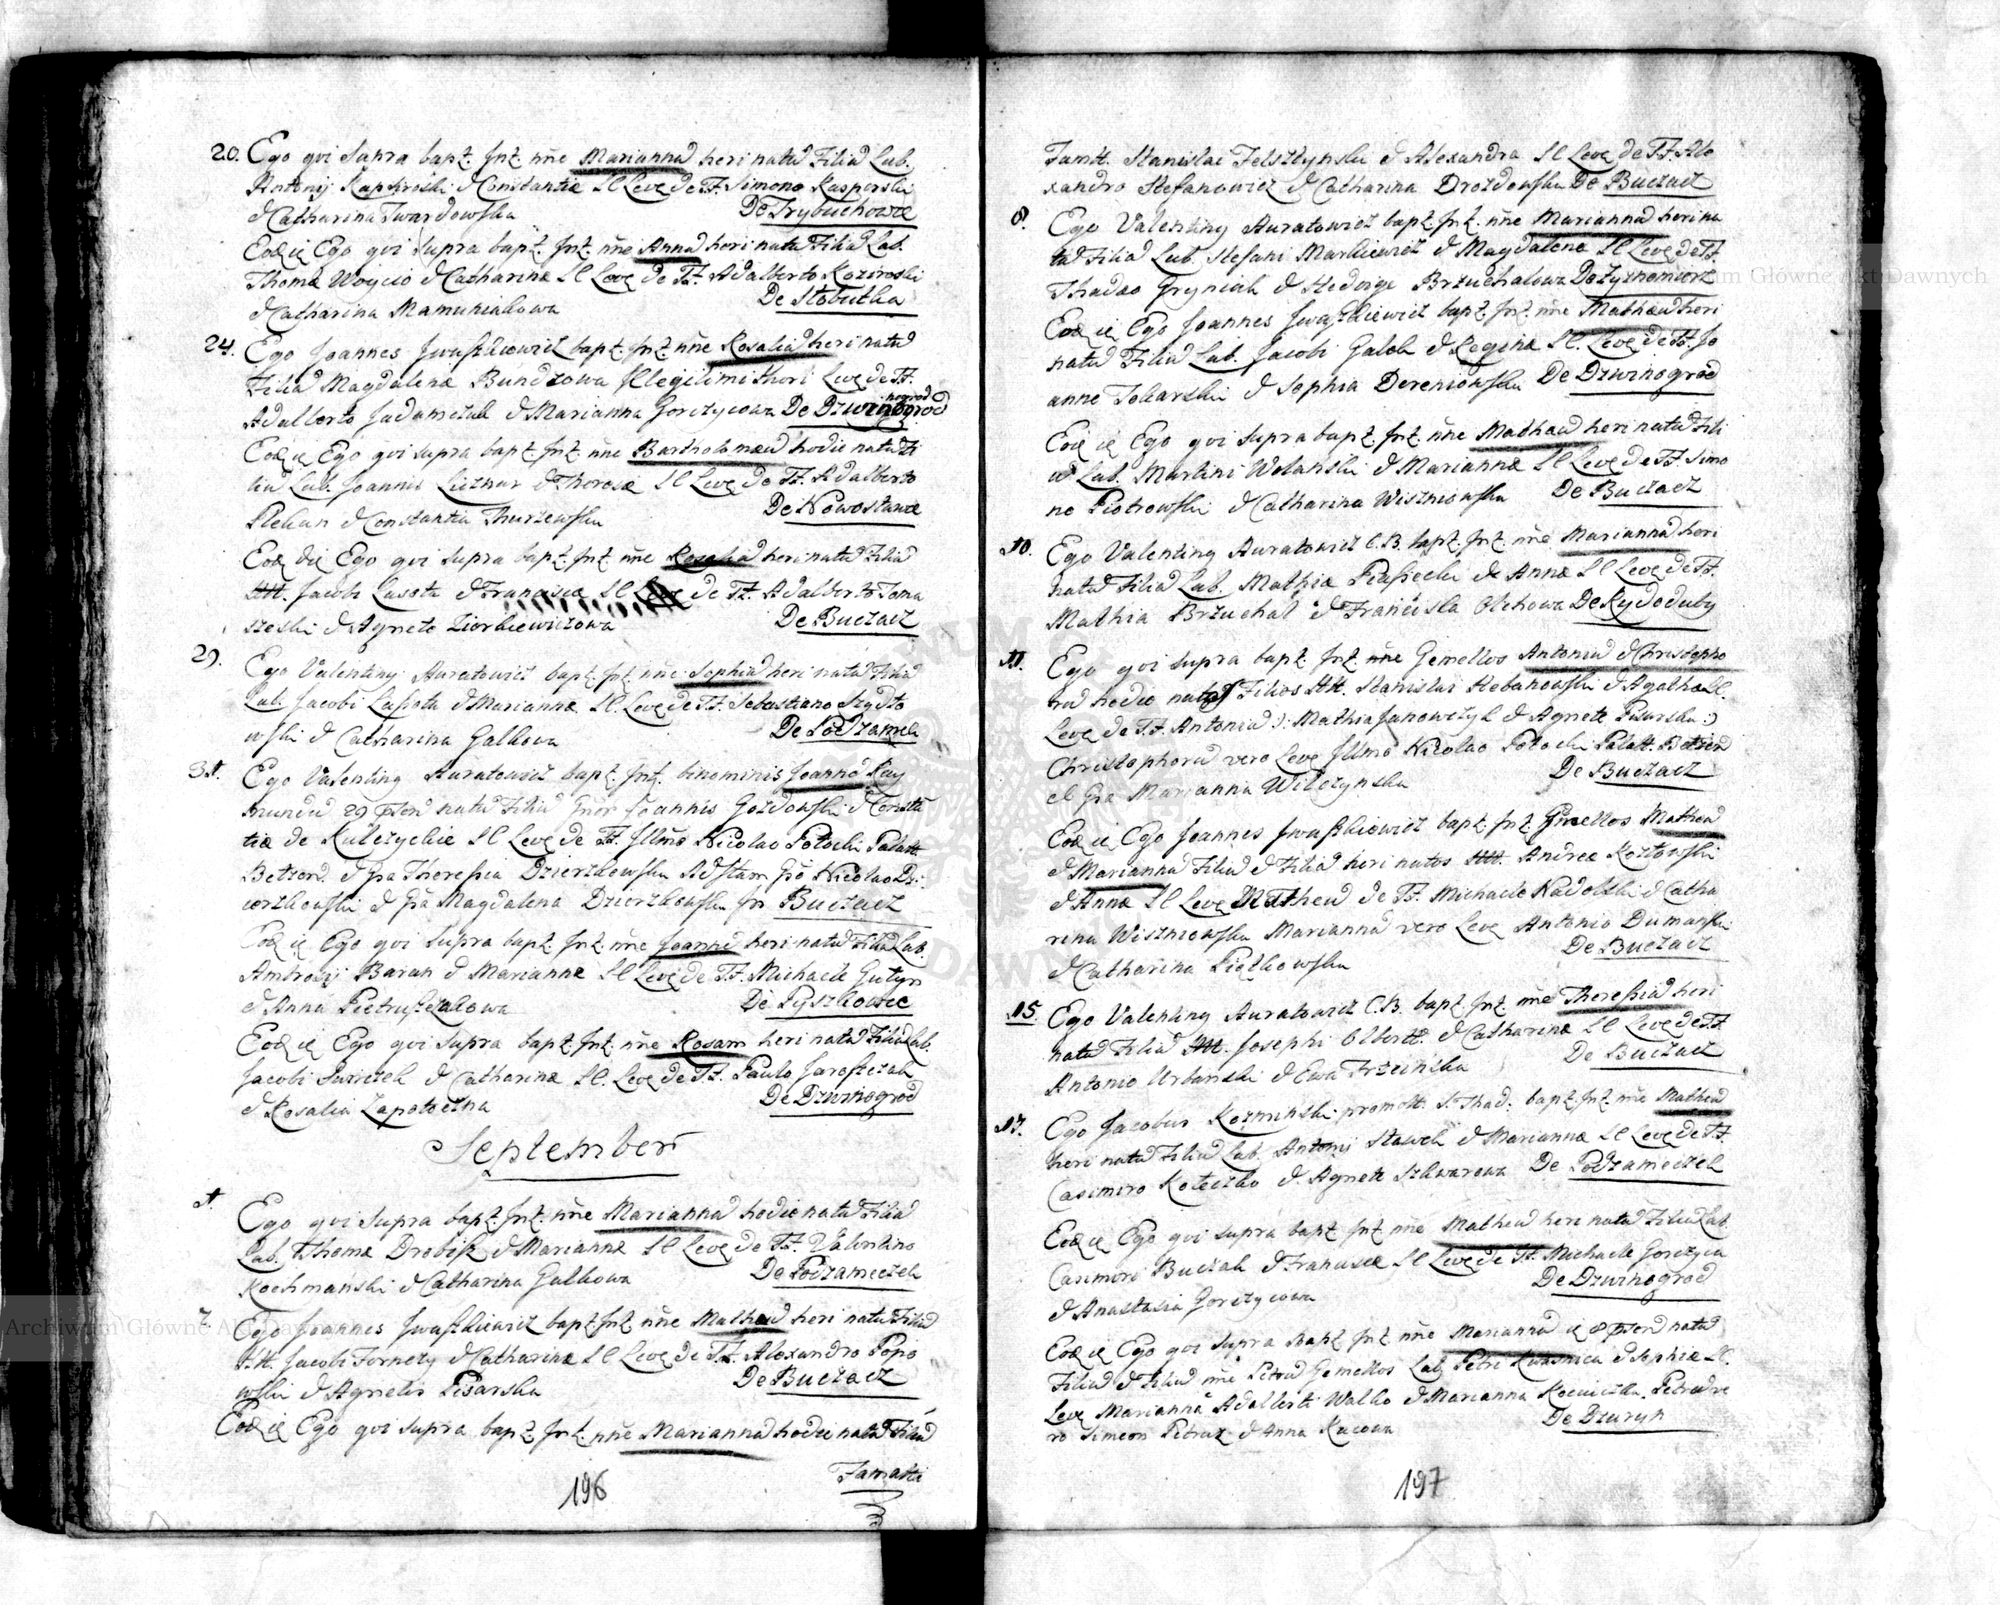 20. Ego qvi supra bapt. Int. nne Mariannā heri natā Filiā Lab.
Antonij Kapkroski & Constantiæ SC Leve de FF. Simone Kasperski
& Catharina Twardowska De Trybuchowce
Eod ie Ego qvi supra bapt. Int. nne Anna heri natā Filiā Lab.
Thomæ Woycio & Catharinæ SC Leve de FF. Adalberto Koziroski
& Catharina Mamuniakowa De Słobutka
24. Ego Joannes Iwaszkiewicz bapt. Int. nne Rosaliā heri natā
Filiā Magdalenæ Bundzowa Illegitimi thori Leve de FF.
Adalberto Jadamczuk & Marianna Gorczycowa De Dzwinogrod
nogrod
Eod ie Ego qvi supra bapt. Int. nne Bartholomæū hodie natū Fi
liū Lab. Joannis Lisznar & Theresæ SC Leve de FF. Adalberto
Plekan & Constantia Thurzewska De Nowostawce
Eod die Ego qvi supra bapt. Int. nne Rosaliā heri natā Filiā
HH. Jacobi Lasota & Franciscæ SC Leve de FF. Adalberto Toma
szeski & Agnete Ziorkiewiczowa De Buczacz
29. Ego Valentinq Auratowicz bapt. Int. nne Sophiā heri natā Filiā
Lab. Jacobi Lassota & Mariannæ SC Leve de FF. Sebastiano Szydło
wski & Catharina Galkowa De Podzamek
31. Ego Valentinq Auratowicz bapt. Int. binominis Joannē Ray
mundū 29 natū Filiū Joannis Gozdowski & Constā
tiæ de Kulczyckie SC Leve de FF. Illmō Nicolao Potocki Palatt.
Betzen. & Gsa Theressia Dzierzkowska Adstan. Gso Nicolao Dzi
erzkowski & Gsa Magdalena Dzierzkowska In Buczacz
Eod ie Ego qvi supra bapt. Int. nne Joannē heri natū Filiū Lab.
Ambrozij Baran & Mariannæ SC Leve de FF. Michaele Gutyn
& Anna Pietruszczakowa De Pyszkowce
Eod ie Ego qvi supra bapt. Int. nne Rosam heri natā Filiā Lab.
Jacobi & Catharinæ SC. Leve de FF. Paulo Jaroszczak
& Rosalia Zapotoczna De Dzwinogrod
September
1. Ego qvi supra bapt. Int. nne Mariannā hodie natā Filiā
Lab. Thomæ Drobisz & Mariannæ SC Leve de FF. Valentino
Kochmański & Catharina Gulkowa De Podzameczek
7. Ego Joannes Iwaszkiewicz bapt. Int. nne Mathæū heri natū Filiū
HH. Jacobi Fornety & Catharinæ SC Leve de FF. Alexandro Popo
wski & Agnetis Pisarska De Buczacz
Eod ie Ego qvi supra bapt. Int. nne Mariannā hodie natā Filiā
Famatti
196
Famtt. Stanislai Felsztynski & Alexandra SC Leve de FF. Ale
xandro Stefanowicz & Catharina Drozdowska De Buczacz
8. Ego Valentinq Auratowicz bapt. Int. nne Mariannā heri na
tā Filiā Lab. Stefani Markiewicz & Magdalenæ SC Leve de FF.
Thadæo Gryniak & Hedvige Brzuchalowa De Zyznomierz
Eod ie Ego Joannes Iwaszkiewicz bapt. Int. nne Mathæū heri
natū Filiū Lab. Jacobi Galek & Reginæ SC. Leve de FF. Jo
anne Tokarski & Sophia Dereniowska De Dzwinogrod
Eod ie Ego qvi supra bapt. Int. nne Mathæū heri natū Fili
ū Lab. Martini Wolanski & Mariannæ SC Leve de FF. Simo
ne Piotrowski & Catharina Wiszniowska De Buczacz
10. Ego Valentinq Auratowicz C.B. bapt. Int. nne Mariannā heri
natā Filiā Lab. Mathiæ Piasiecki & Annæ SC Leve de FF.
Mathia Brzuchal & Francisca Olchowa De Rydoduby
11. Ego qvi supra bapt. Int. nne Gemellos Antoniū & Christopho
rū hodie natos Filios HH. Stanislai Hebanowski & Agathæ SC.
Leve de FF. Antoniū): Mathia Janowczyk & Agnete Pisarska :)
Christophorū vero Leve Illmō Nicolao Potocki Palatt. Betzen
et Gsa Marianna Wilczynska De Buczacz
Eod ie Ego Joannes Iwaszkiewicz bapt. Int. Gmellos Matheū
& Mariannā Filiū & Filiā heri natos HH. Andreæ Kozłowski
& Annæ SC Leve Matheū de FF. Michaele Nadolski & Catha
rina Wiszniowska Mariannā vero Leve Antonio Dumański
& Catharina Piętkowska De Buczacz
15. Ego Valentinq Auratowicz C.B. bapt. Int. nne Theressiā heri
natā Filiā HH. Josephi Olbertt. & Catharinæ SC Leve de FF.
Antonio Urbański & Ewa Trzcinska De Buczacz
17. Ego Jacobus Kozminski promott. S. Thad: bapt. Int. nne Matheū
heri natū Filiū Lab. Antonij Sławek & Mariannæ SC Leve de FF.
Casimiro Koteczko & Agnete Szkwarowa De Podzameczek
Eod ie Ego qvi supra bapt. Int. nne Matheū heri natū Filiū Lab.
Casimiri Buczak & Franciscæ SC Leve de FF. Michaele Gorczyca
& Anastasia Gorczycowa De Dzwinogrod
Eod ie Ego qvi supra bapt. Int. nne Mariannā natā
Filiā & Filiū nne Petrū Gemellos Lab. Petri Kwasnica & Sophiæ SC.
Leve Mariannā Adalberti Walko & Marianna Koeniczka. Petrū ve
ro Simeon Pietraz & Anna Kucowa De Dzuryn
197
Archiwum Główne Akt Dawnych
Archiwum Główne Akt Dawnych